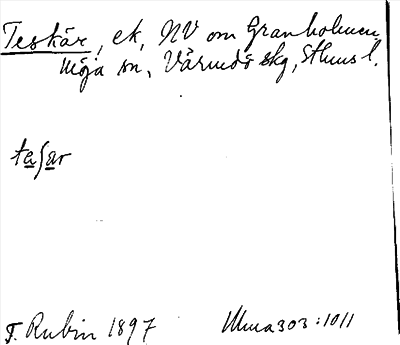 Teskär, ek, NV om Granholmen,
Möja sn, Värmdö skg, Sthms l.
taſar
F. Rubin 1897 Uma 303:1011